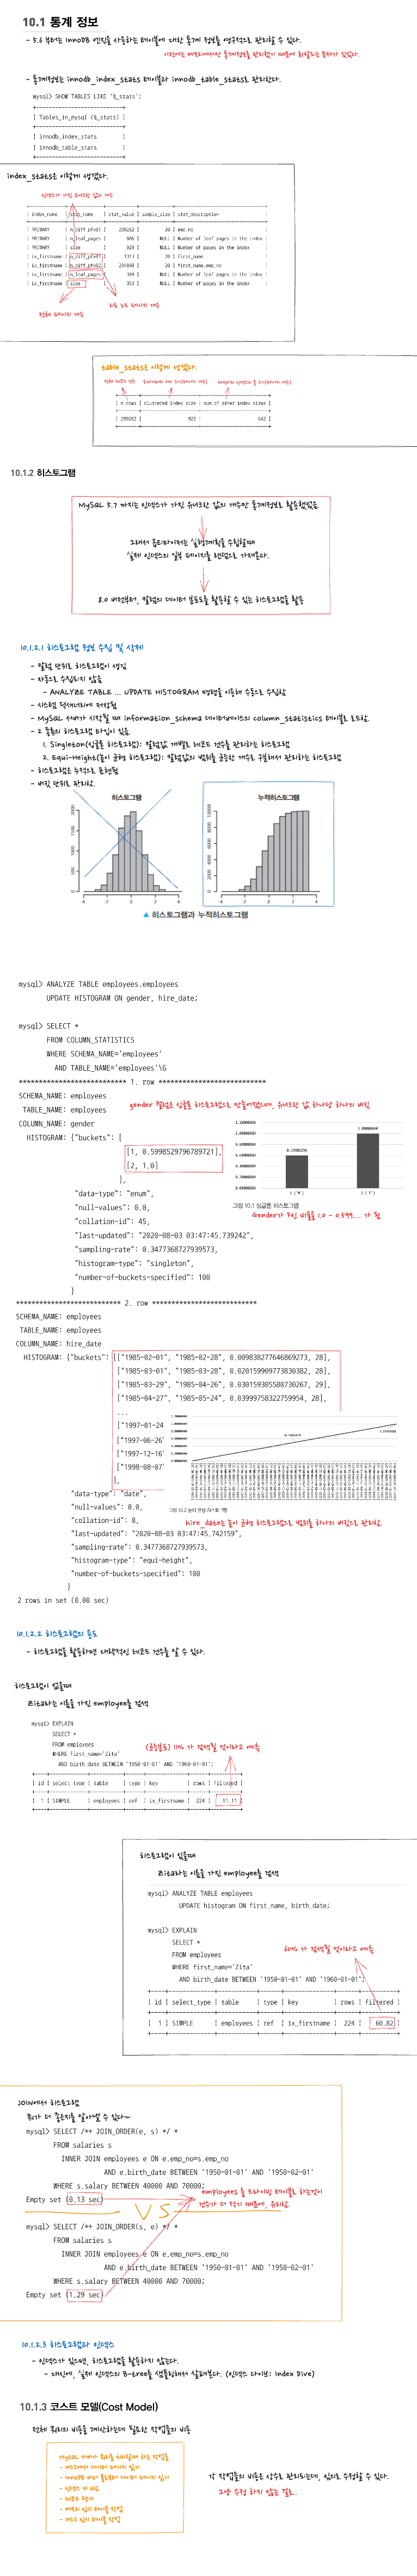 10.1 통계 정보
- 5.6 부터는 InnoDB 엔진을 사용하는 테이블에 대한 통계 정보를 영구적으로 관리할 수 있다.
이전에는 메모리에서만 통계정보를 관리했기 때문에 휘발되는 문제가 있었다.
- 통계정보는 innodb_index_stats 테이블과 innodb_table_stats로 관리한다.
mysql> SHOW TABLES LIKE '%_stats';
| Tables_in_mysql (%_stats) |
| innodb_index_stats |
| innodb_table_stats |
index_stats은 이렇게 생겼다.
인덱스가 가진 유니크한 값의 개수
| index_name | stat_name | stat_value | sample_size | stat_description
| PRIMARY | n_diff_pfx01 | 299202 | 20 | emp_no
| PRIMARY | n_leaf_pages | 886 | NULL | Number of leaf pages in the index |
| PRIMARY | size | 929 | NULL | Number of pages in the index
| ix_firstname | n_diff_pfx01 | 1313 | 20 | first_name
| ix_firstname | n_diff_pfx02 | 294090 | 20 | first_name,emp_no
| ix_firstname | n_leaf_pages | 309 | NULL | Number of leaf pages in the index |
| ix_firstname | size | 353 | NULL | Number of pages in the index
리프 노드 페이지 개수
전체 페이지 개수
table_stats은 이렇게 생겼다.
전체 레코드 건수
| n_rows | clustered_index_size | sum_of_other_index_sizes |
| 299202 | 929 | 642 |
10.1.2 히스토그램
MySQL 5.7 까지는 인덱스가 가진 유니크한 값의 개수만 통계정보로 활용했었음
그래서 옵티마이저는 실행계획을 수립할때
실제 인덱스의 일부 페이지를 랜덤으로 가져온다.
8.0 버전부터, 컬럼의 데이터 분포도를 활용할 수 있는 히스토그램을 활용
10.1.2.1 히스토그램 정보 수집 및 삭제
- 컬럼 단위로 히스토그램이 생김
- 자동으로 수집되지 않음
- ANALYZE TABLE ... UPDATE HISTOGRAM 명령을 이용해 수동으로 수집함
- 시스템 딕셔너리에 저장됨
- MySQL 서버가 시작될 때 information_schema 데이터베이스의 column_statistics 테이블로 로드함.
- 2 종류의 히스토그램 타입이 있음
1. Singleton(싱글톤 히스토그램): 컬럼값 개별로 레코드 건수를 관리하는 히스토그램
2. Equi-Height(높이 균형 히스토그램): 컬럼값의 범위를 균등한 개수로 구분해서 관리하는 히스토그램
- 히스토그램은 누적으로 표현됨
- 버킷 단위로 관리함.
히스토그램
누적히스토그램
2000
1500
1000
500
0
-4 -2 0 2 4
10000
8000
6000
4000
2000
0
-4 -2 0 2 4
▲ 히스토그램과 누적히스토그램
mysql> ANALYZE TABLE employees.employees
UPDATE HISTOGRAM ON gender, hire_date;
mysql> SELECT *
FROM COLUMN_STATISTICS
WHERE SCHEMA_NAME='employees'
AND TABLE_NAME='employees'\G
*************************** 1. row ***************************
SCHEMA_NAME: employees
TABLE_NAME: employees
gender 컬럼은 싱글톤 히스토그램으로 만들어졌으며, 유니크한 값 하나당 하나의 버킷
COLUMN_NAME: gender
HISTOGRAM: {"buckets": [
[1, 0.5998529796789721],
[2, 1.0]
],
"data-type": "enum",
"null-values": 0.0,
"collation-id": 45,
"last-updated": "2020-08-03 03:47:45.739242",
"sampling-rate": 0.3477368727939573,
"histogram-type": "singleton",
"number-of-buckets-specified": 100
}
1 ('M') 2 ('F')
그림 10.1 싱글톤 히스토그램
Gender가 F인 비율은 1.0 - 0.599.... 가 됨
*************************** 2. row ***************************
SCHEMA_NAME: employees
TABLE_NAME: employees
COLUMN_NAME: hire_date
HISTOGRAM: {"buckets": [["1985-02-01", "1985-02-28", 0.009838277646869273, 28],
["1985-03-01", "1985-03-28", 0.020159909773830382, 28],
["1985-03-29", "1985-04-26", 0.030159305580730267, 29],
["1985-04-27", "1985-05-24", 0.03999758322759954, 28],
...
["1997-01-24
["1997-06-26
["1997-12-16
["1998-08-07
],
그림 10.2 높이 균형 히스토그램
"data-type": "date",
"null-values": 0.0,
"collation-id": 8,
hire_date는 높이 균형 히스토그램으로 범위를 하나의 버킷으로 관리함.
"last-updated": "2020-08-03 03:47:45.742159",
"sampling-rate": 0.3477368727939573,
"histogram-type": "equi-height",
"number-of-buckets-specified": 100
}
2 rows in set (0.00 sec)
10.1.2.2 히스토그램의 용도
- 히스토그램을 활용하면 대략적인 레코드 건수를 알 수 있다.
히스토그램이 없을때
Zita라는 이름을 가진 employee를 검색
mysql> EXPLAIN
SELECT *
FROM employees
WHERE first_name='Zita'
AND birth_date BETWEEN '1950-01-01' AND '1960-01-01';
(균등분포) 11% 가 검색될 것이라고 예측
| id | select_type | table | type | key | rows | filtered |
| 1 | SIMPLE | employees | ref | ix_firstname | 224 | 11.11 |
히스토그램이 있을때
Zita라는 이름을 가진 employee를 검색
mysql> ANALYZE TABLE employees
UPDATE histogram ON first_name, birth_date;
mysql> EXPLAIN
SELECT *
FROM employees
WHERE first_name='Zita'
AND birth_date BETWEEN '1950-01-01' AND '1960-01-01';
60% 가 검색될 것이라고 예측
| id | select_type | table | type | key | rows | filtered |
| 1 | SIMPLE | employees | ref | ix_firstname | 224 | 60.82 |
JOIN에서 히스토그램
뭐가 더 좋은지를 알아낼 수 있다~
mysql> SELECT /*+ JOIN_ORDER(e, s) */ *
FROM salaries s
INNER JOIN employees e ON e.emp_no=s.emp_no
AND e.birth_date BETWEEN '1950-01-01' AND '1950-02-01'
WHERE s.salary BETWEEN 40000 AND 70000;
Empty set (0.13 sec)
employees 를 드라이빙 테이블로 하는것이
건수가 더 적기 때문에, 유리함.
VS
mysql> SELECT /*+ JOIN_ORDER(s, e) */ *
FROM salaries s
INNER JOIN employees e ON e.emp_no=s.emp_no
AND e.birth_date BETWEEN '1950-01-01' AND '1950-02-01'
WHERE s.salary BETWEEN 40000 AND 70000;
Empty set (1.29 sec)
10.1.2.3 히스토그램과 인덱스
- 인덱스가 있으면, 히스토그램을 활용하지 않는다.
- 대신에, 실제 인덱스의 B-tree를 샘플링해서 살펴본다. (인덱스 다이브: Index Dive)
10.1.3 코스트 모델(Cost Model)
전체 쿼리의 비용을 계산하는데 필요한 작업들의 비용
MySQL 서버가 쿼리를 처리할때 하는 작업들
- 디스크에서 데이터 페이지 읽기
- InnoDB 버퍼 풀로부터 데이터 페이지 읽기
- 인덱스 키 비교
- 레코드 평가
- 메모리 임시 테이블 작업
- 디스크 임시 테이블 작업
각 작업들의 비용은 상수로 관리되는데, 임의로 수정할 수 있다.
그냥 수정 하지 않는 걸로..